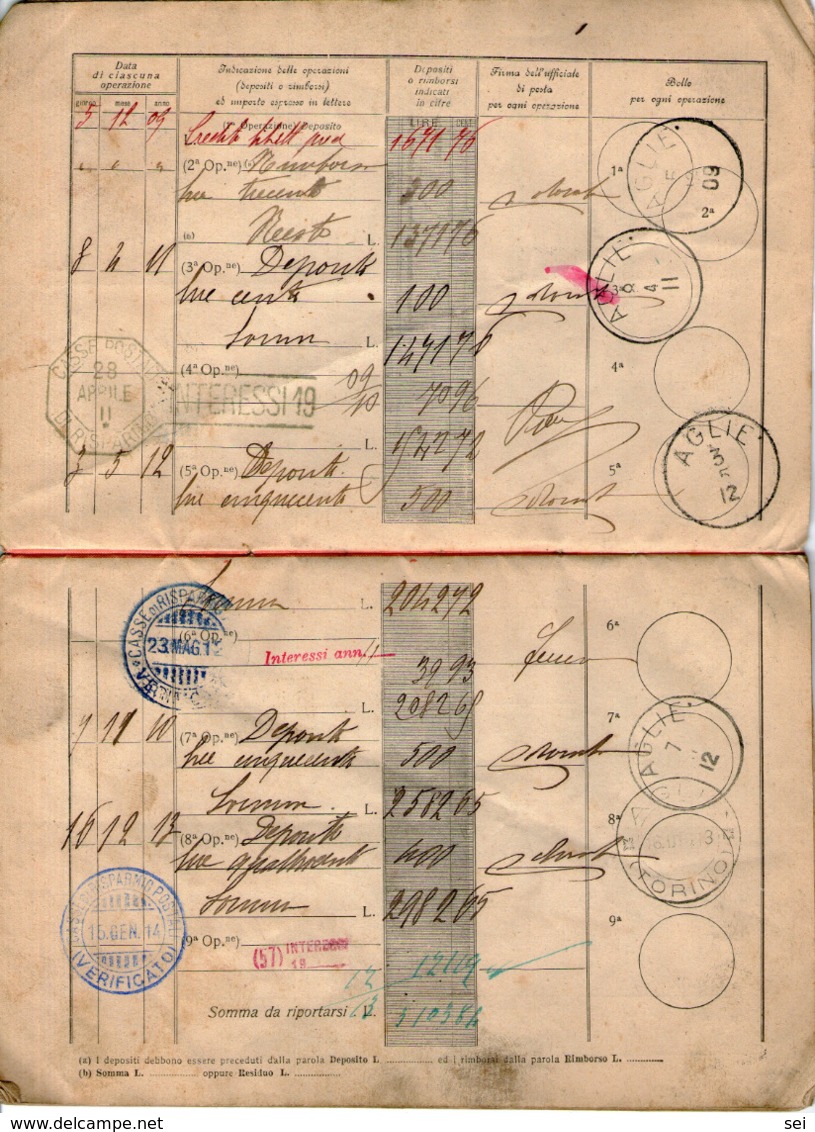 Data
di ciascuna
operazione
Indicazione delle operazioni
(depositi o rimborsi)
ed importo espresso in lettere
Depositi
o rimborsi
indicati
in cifre
Firma dell'ufficiale
di posta
per ogni operazione
Bollo
per ogni operazione
giorno mese anno
LIRE CENT.
5 12 09 Operazione) Deposito 1671 76
(2ª Op.ne) Rimborso
lire trecento 300
1ª
AGLIE 09
2ª
(b) Resto L. 1371 76
8 4 11 (3ª Op.ne) Deposito
lire cento 100
3ª
AGLIE 8 4 11
Somma L. 1471 76
CASSE POSTALI DI RISPARMIO
28 APRILE 11
INTERESSI 19 09
10
(4ª Op.ne) 70 96
4ª
L. 1542 72
3 5 12 (5ª Op.ne) Deposito
lire cinquecento 500
5ª
AGLIE 3 5 12
Somma L. 2042 72
CASSE DI RISPARMIO
23.MAG.1
(6ª Op.ne)
Interessi ann.
39 93
6ª
L. 2082 65
7 11 (7ª Op.ne) Deposito
lire cinquecento 500
7ª
AGLIE 7 12
Somma L. 2582 65
16 12 13 (8ª Op.ne) Deposito
lire quattrocento 400
8ª
AGLIE 13 (TORINO)
Somma L. 2982 65
CASSE DI RISPARMIO POSTALI
15.GEN.14
(VERIFICATO)
(9ª Op.ne)
(57) INTERESSI
19
12
13
121 19
9ª
Somma da riportarsi L. 3103 84
(a) I depositi debbono essere preceduti dalla parola Deposito L. ............ ed i rimborsi dalla parola Rimborso L. ............
(b) Somma L. ............ oppure Residuo L. ............
sei